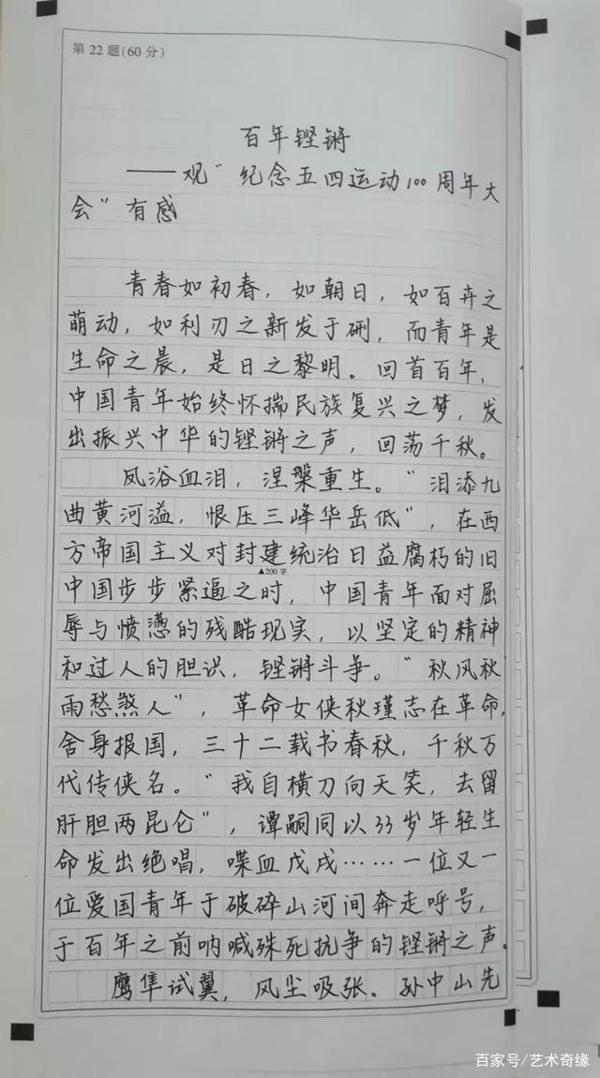 第 22 题(60 分)
百年铿锵
——观“纪念五四运动100周年大
会”有感
青春如初春，如朝日，如百卉之
萌动，如利刃之新发于硎，而青年是
生命之晨，是日之黎明。回首百年，
中国青年始终怀揣民族复兴之梦，发
出振兴中华的铿锵之声，回荡千秋。
凤浴血泪，涅槃重生。“泪添九
曲黄河溢，恨压三峰华岳低”，在西
方帝国主义对封建统治日益腐朽的旧
▲200 字
中国步步紧逼之时，中国青年面对屈
辱与愤懑的残酷现实，以坚定的精神
和过人的胆识，铿锵斗争。“秋风秋
雨愁煞人”，革命女侠秋瑾志在革命，
舍身报国，三十二载书春秋，千秋万
代传侠名。“我自横刀向天笑，去留
肝胆两昆仑”，谭嗣同以33岁年轻生
命发出绝唱，喋血戊戌……一位又一
位爱国青年于破碎山河间奔走呼号，
于百年之前呐喊殊死抗争的铿锵之声。
鹰隼试翼，风尘吸张。孙中山先
百家号/艺术奇缘